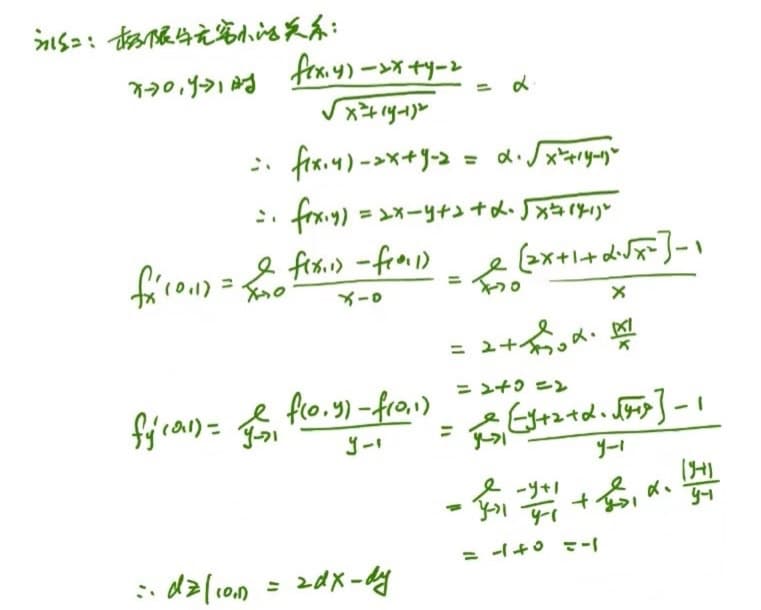 法二：极限与无穷小的关系：
x→0, y→1 时 (f(x,y) -2x+y-2)/√(x²+(y-1)²) = α
∴ f(x,y) -2x+y-2 = α·√(x²+(y-1)²)
∴ f(x,y) = 2x-y+2+α·√(x²+(y-1)²)
f'x(0,1) = lim x→0 (f(x,1) - f(0,1))/(x-0) = lim x→0 ([2x+1+α·√x²]-1)/x
= 2+lim x→0 α·|x|/x
= 2+0 = 2
f'y(0,1) = lim y→1 (f(0,y) - f(0,1))/(y-1) = lim y→1 ([-y+2+α·√(y-1)²]-1)/(y-1)
= lim y→1 (-y+1)/(y-1) + lim y→1 α·|y-1|/(y-1)
= -1+0 = -1
∴ dz|(0,1) = 2dx-dy